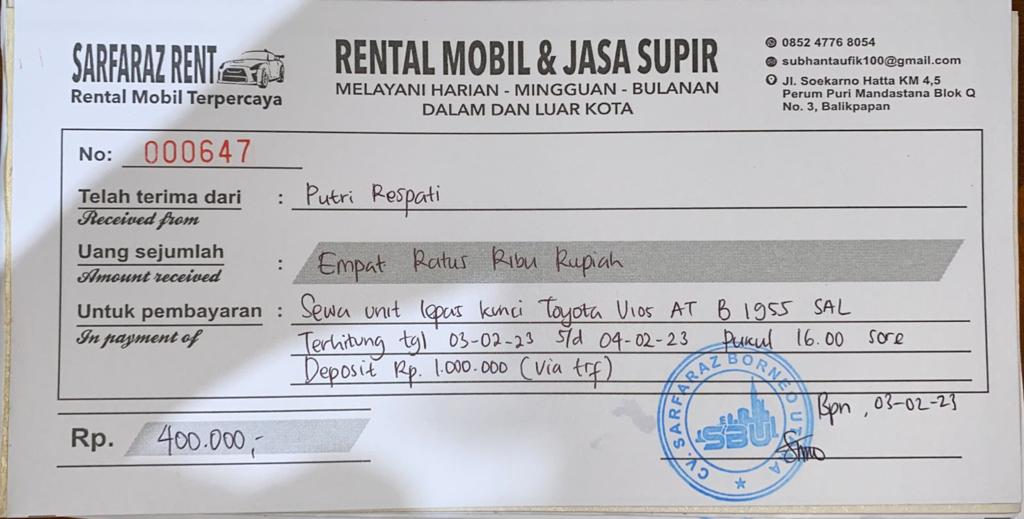 SARFARAZ RENT
Rental Mobil Terpercaya
RENTAL MOBIL & JASA SUPIR
MELAYANI HARIAN - MINGGUAN - BULANAN
DALAM DAN LUAR KOTA
0852 4776 8054
subhantaufik100@gmail.com
Jl. Soekarno Hatta KM 4,5
Perum Puri Mandastana Blok Q
No. 3, Balikpapan
No: 000647
Telah terima dari : Putri Respati
Received from
Uang sejumlah : Empat Ratus Ribu Rupiah
Amount received
Untuk pembayaran : Sewa unit lepas kunci Toyota Vios AT B 1955 SAL
In payment of
Terhitung tgl 03-02-23 s/d 04-02-23 Pukul 16.00 sore
Deposit Rp. 1.000.000 (Via trf)
Bpn, 03-02-23
Rp. 400.000,-
CV. SARFARAZ BORNEO UTAMA
SBU